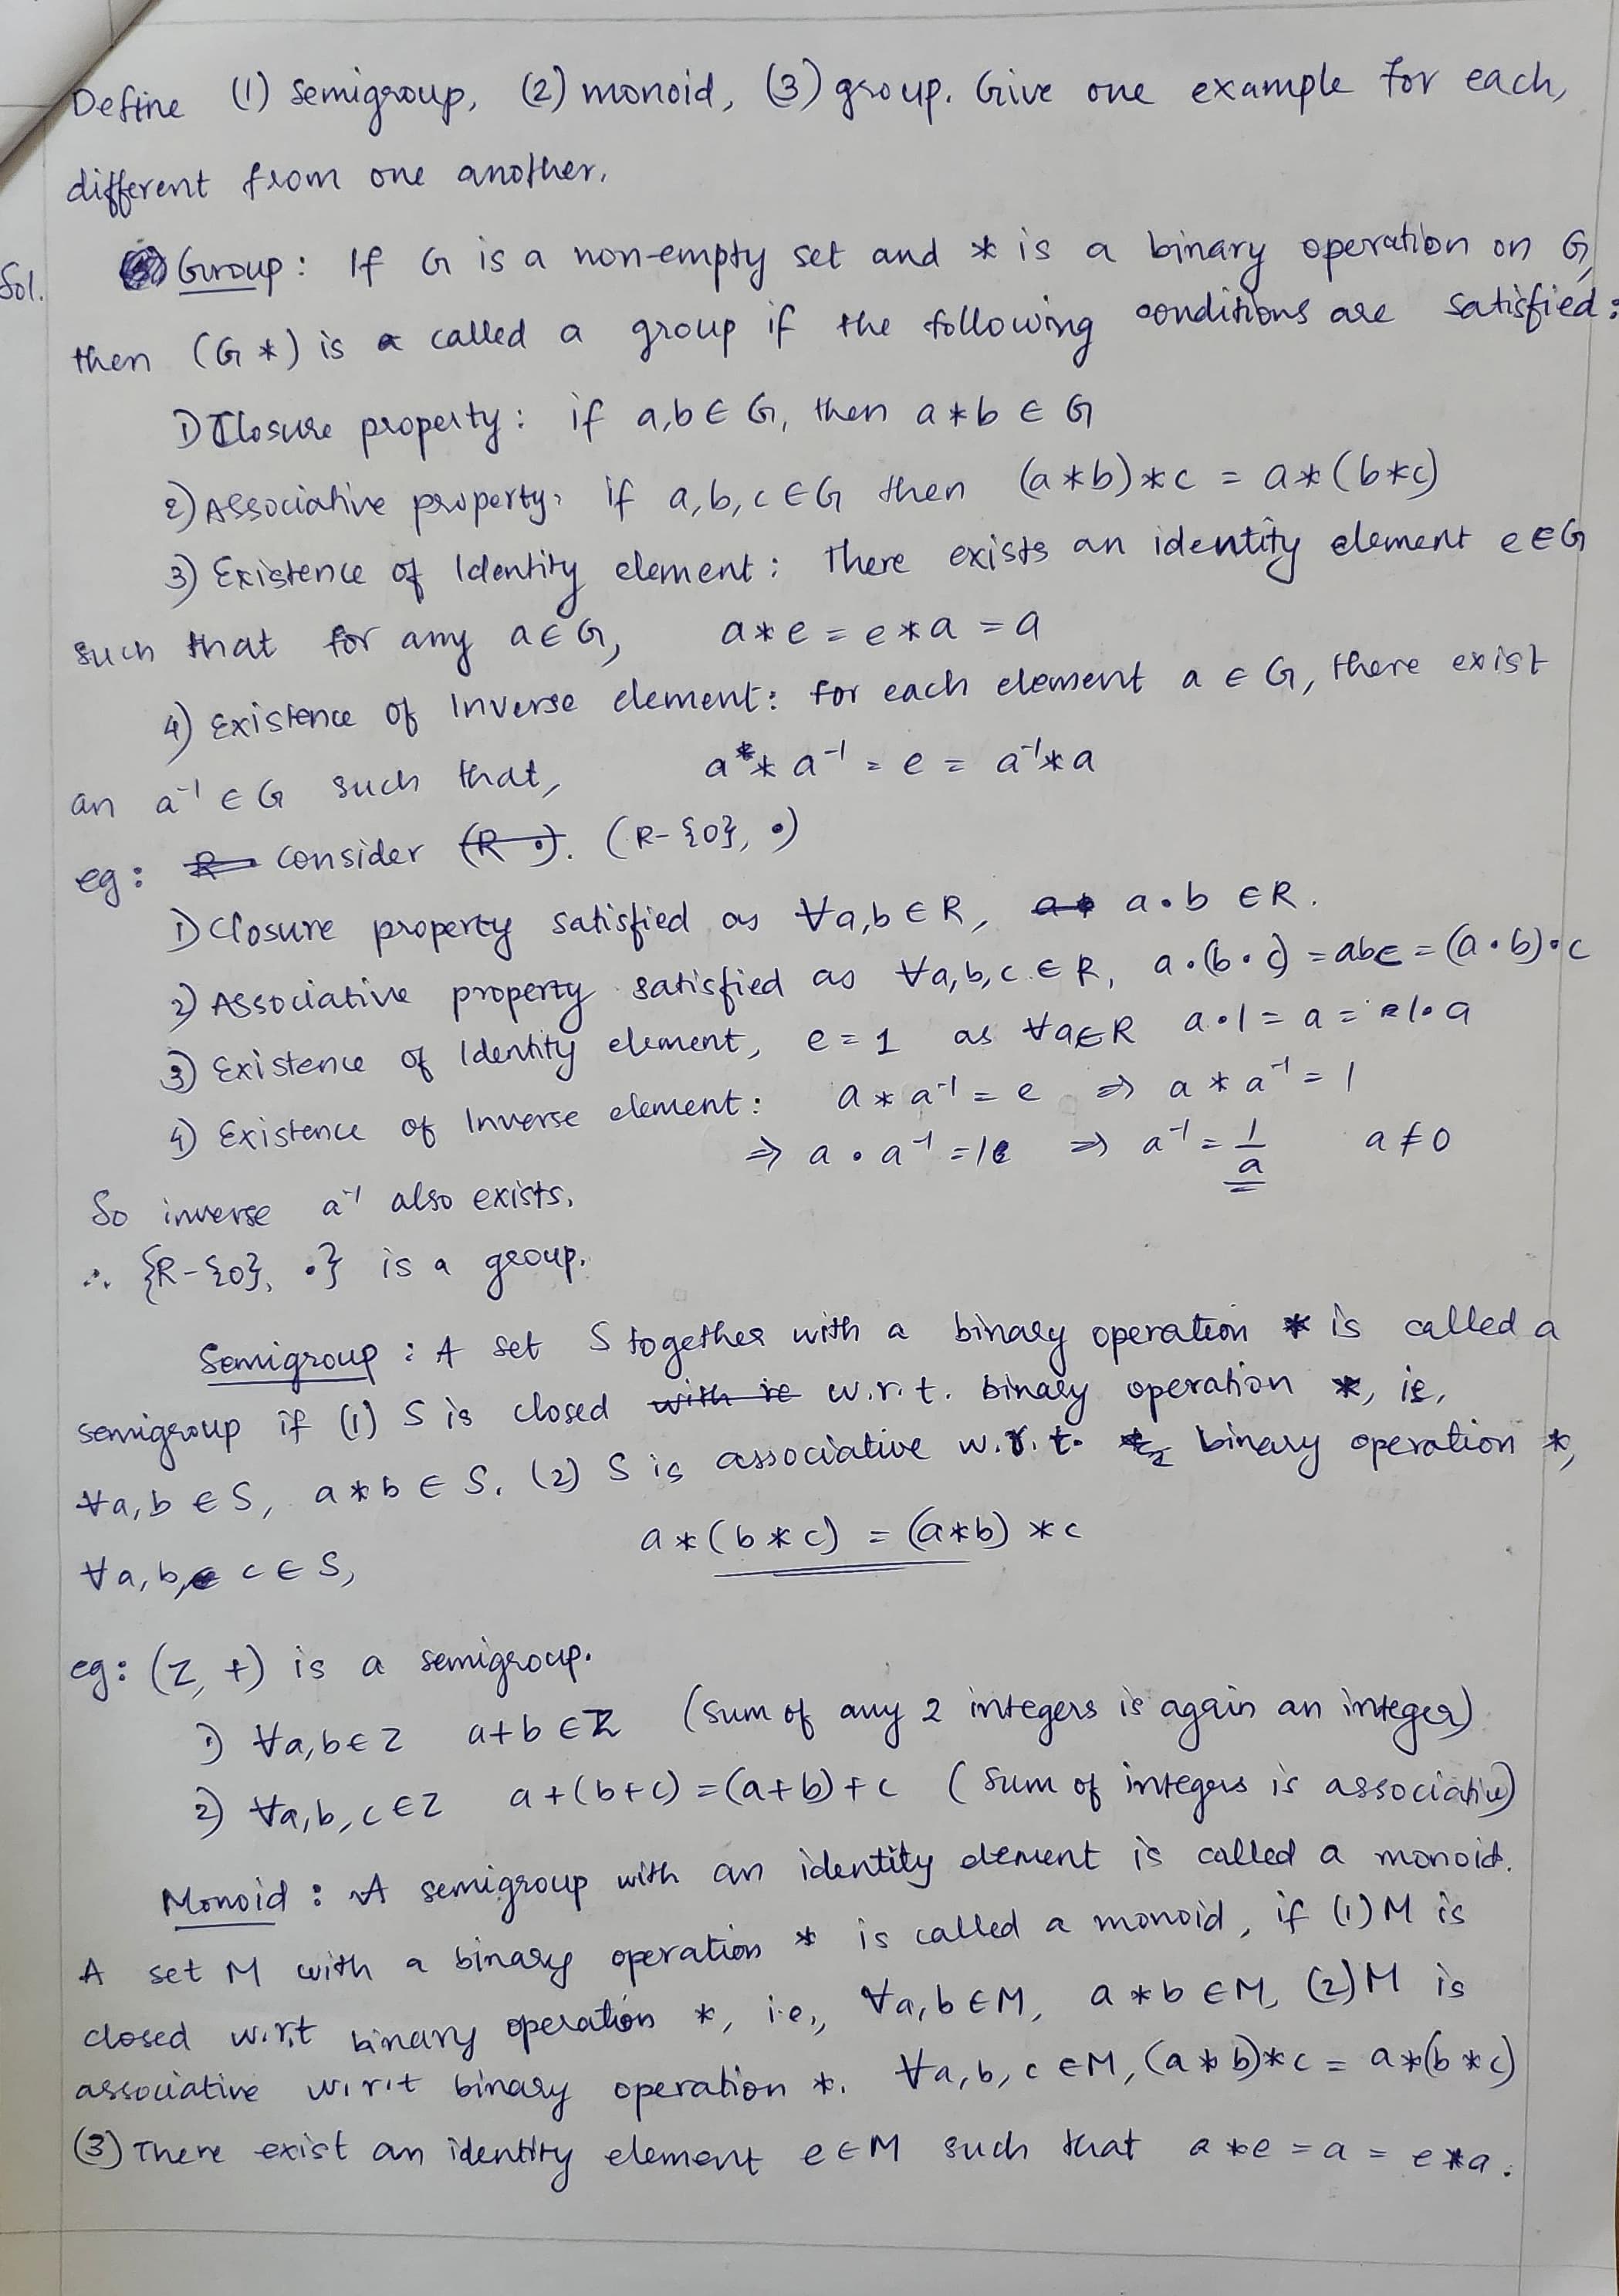 Define (1) Semigroup, (2) monoid, (3) group. Give one example for each,
different from one another.
Sol. Group: If G is a non-empty set and * is a binary operation on G,
then (G *) is a called a group if the following conditions are satisfied:
1) Closure property: if a,b ∈ G, then a*b ∈ G
2) Associative property, if a,b,c ∈ G then (a*b)*c = a*(b*c)
3) Existence of Identity element: There exists an identity element e∈G
such that for any a∈G, a*e = e*a = a
4) Existence of Inverse element: for each element a ∈ G, there exist
an a⁻¹ ∈ G such that, a * a⁻¹ = e = a⁻¹*a
eg: Consider (R •). (R-{0}, •)
1) Closure property satisfied as ∀a,b∈R, a•b ∈R.
2) Associative property satisfied as ∀a,b,c ∈ R, a•(b•c) = abc = (a•b)•c
3) Existence of Identity element, e=1 as ∀a∈R a•1 = a = 1•a
4) Existence of Inverse element: a * a⁻¹ = e ⇒ a * a⁻¹ = 1
⇒ a • a⁻¹ = 1 ⇒ a⁻¹ = 1/a a≠0
So inverse a⁻¹ also exists.
∴ {R-{0}, •} is a group.
Semigroup: A set S together with a binary operation * is called a
semigroup if (1) S is closed with re w.r.t. binary operation *, ie,
∀a,b ∈ S, a*b ∈ S. (2) S is associative w.r.t. binary operation *,
∀a,b, c ∈ S, a*(b*c) = (a*b)*c
eg: (Z, +) is a semigroup.
1) ∀a,b∈Z a+b∈Z (Sum of any 2 integers is again an integer)
2) ∀a,b,c∈Z a+(b+c) = (a+b)+c (Sum of integers is associative)
Monoid: A semigroup with an identity element is called a monoid.
A set M with a binary operation * is called a monoid, if (1) M is
closed w.r.t binary operation *, i.e., ∀a,b∈M, a*b∈M, (2) M is
associative w.r.t binary operation *. ∀a,b,c∈M, (a*b)*c = a*(b*c)
(3) There exist an identity element e∈M such that a*e = a = e*a.